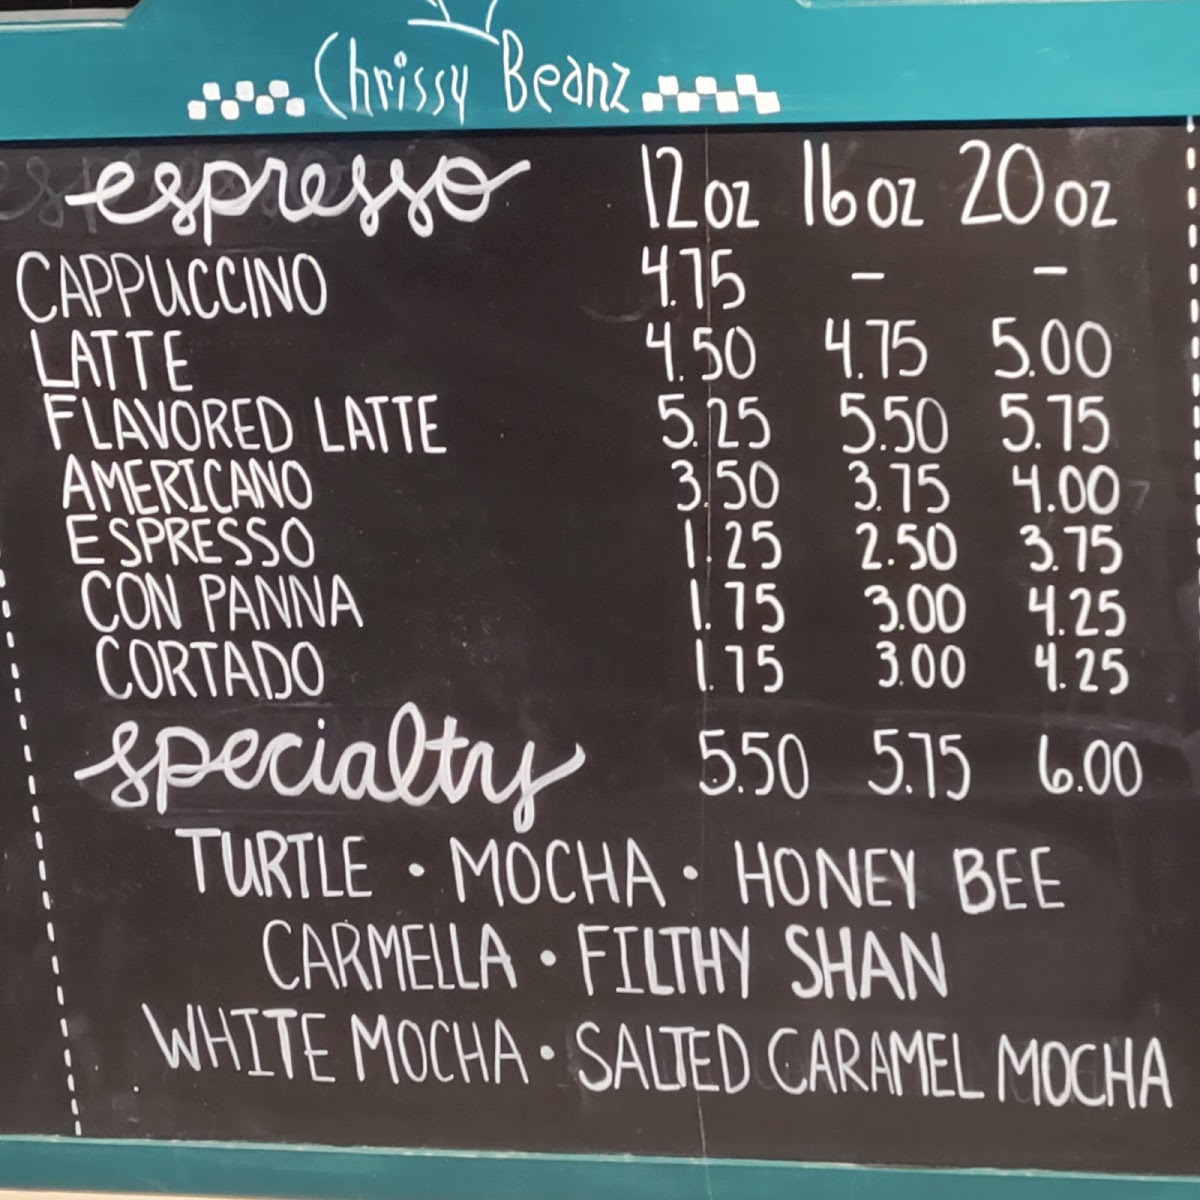 Chrissy Beanz
espresso 12oz 16oz 20oz
CAPPUCCINO 4.75 – –
LATTE 4.50 4.75 5.00
FLAVORED LATTE 5.25 5.50 5.75
AMERICANO 3.50 3.75 4.00
ESPRESSO 1.25 2.50 3.75
CON PANNA 1.75 3.00 4.25
CORTADO 1.75 3.00 4.25
specialty 5.50 5.75 6.00
TURTLE • MOCHA • HONEY BEE
CARMELLA • FILTHY SHAN
WHITE MOCHA • SALTED CARAMEL MOCHA